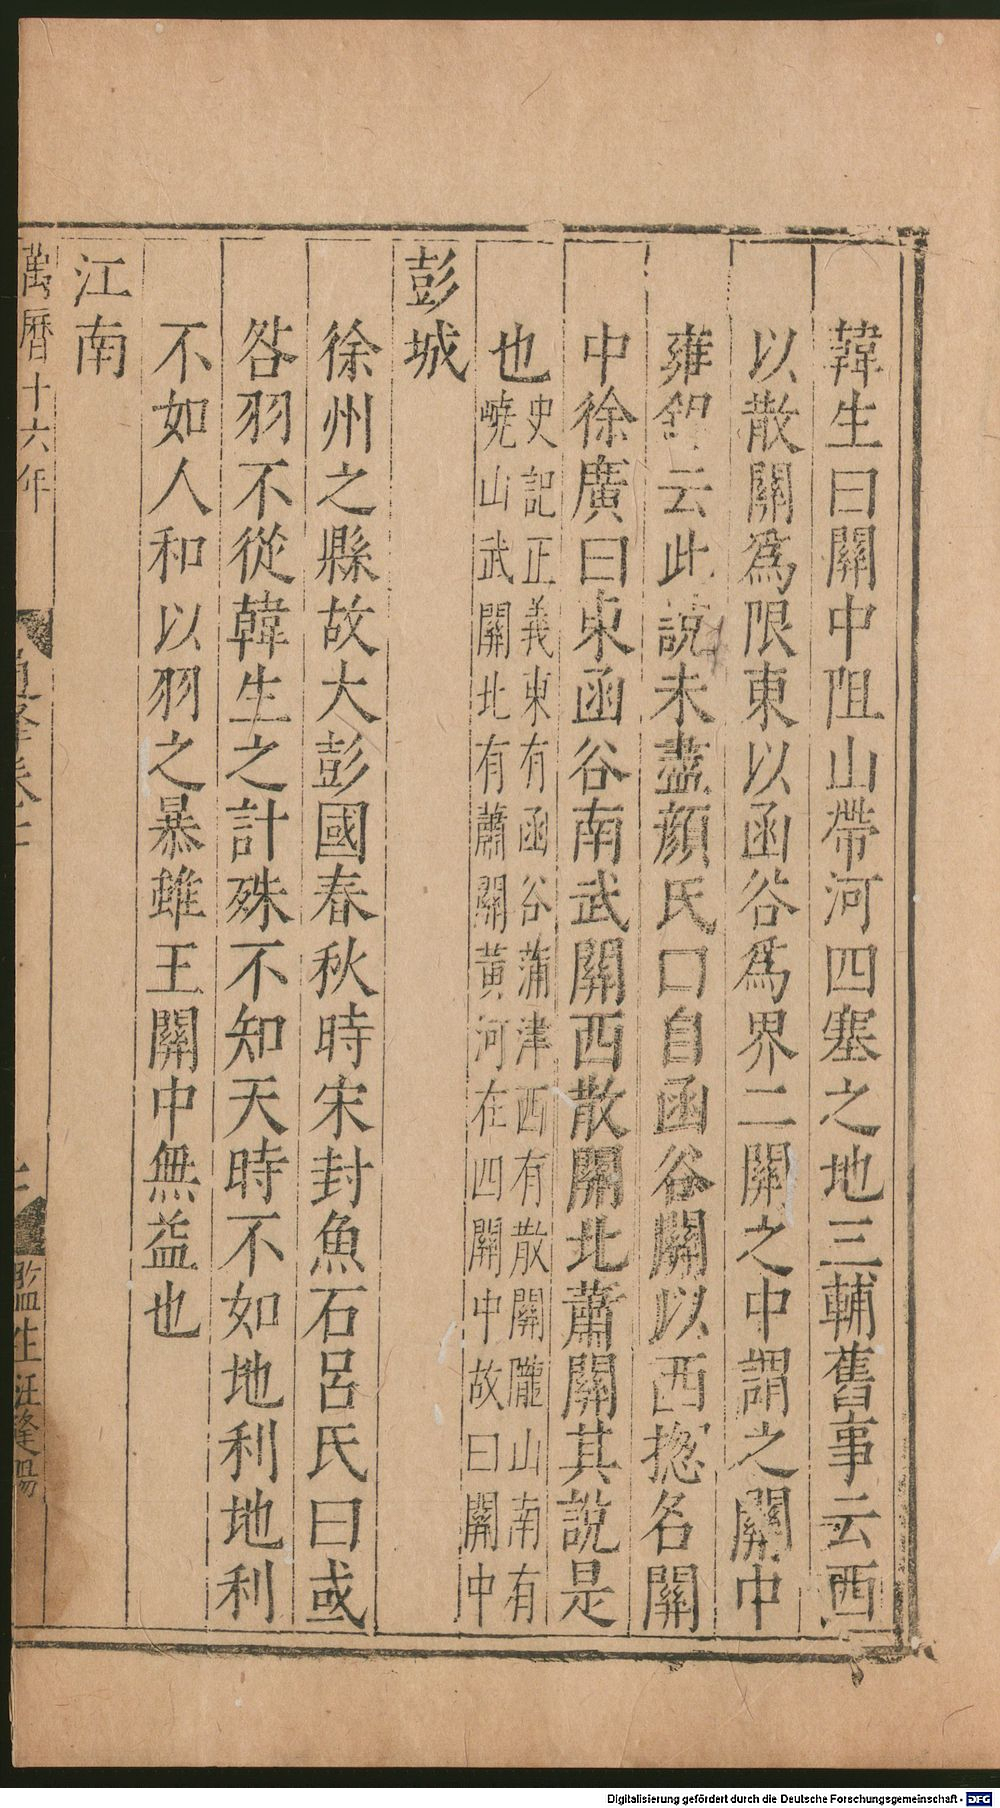 韓生曰關中阻山帶河四塞之地三輔舊事云西
以散關爲限東以函谷爲界二關之中謂之關中
雍錄云此說未盡顔氏曰自函谷關以西揔名關
中徐廣曰東函谷南武關西散關北蕭關其說是
也
史記正義東有函谷蒲津西有散關隴山南有
嶢山武關北有蕭關黃河在四關中故曰關中
彭城
徐州之縣故大彭國春秋時宋封魚石呂氏曰或
咎羽不從韓生之計殊不知天時不如地利地利
不如人和以羽之暴雖王關中無益也
江南
萬曆十六年
監生汪
Digitalisierung gefördert durch die Deutsche Forschungsgemeinschaft - DFG